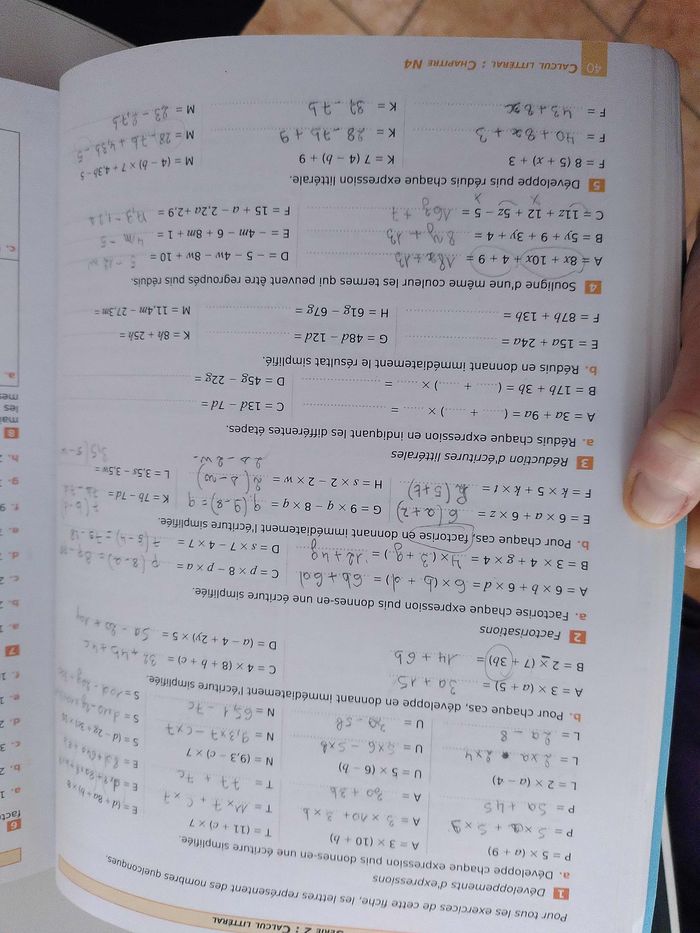 SÉRIE 2 : CALCUL LITTÉRAL
Pour tous les exercices de cette fiche, les lettres représentent des nombres quelconques.
1 Développements d'expressions
a. Développe chaque expression puis donnes-en une écriture simplifiée.
P = 5 × (a + 9)
P = 5 × a + 5 × 9
P = 5a + 45
L = 2 × (a − 4)
L = 2 × a 2 × 4
L = 2a − 8
A = 3 × (10 + b)
A = 3 × 10 + 3 × b
A = 30 + 3b
U = 5 × (6 − b)
U = 5 × 6 − 5 × b
U = 30 − 5b
T = (11 + c) × 7
T = 11 × 7 + c × 7
T = 77 + 7c
N = (9,3 − c) × 7
N = 9,3 × 7 − c × 7
N = 65,1 − 7c
E = (d + 8a + b) × 8
S = (d − 2g + 3
b. Pour chaque cas, développe en donnant immédiatement l'écriture simplifiée.
A = 3 × (a + 5) = 3a + 15
B = 2 × (7 + 3b) = 14 + 6b
C = 4 × (8 + b + c) = 32 + 4b + 4c
D = (a − 4 + 2y) × 5 = 5a − 20 + 10y
2 Factorisations
a. Factorise chaque expression puis donnes-en une écriture simplifiée.
A = 6 × b + 6 × d = 6 × (b + d) = 6b + 6d
B = 3 × 4 + g × 4 = 4 × (3 + g) = 12 + 4g
C = p × 8 − p × a = p (8 − a) = 8p
D = s × 7 − 4 × 7 = 7 (s − 4) = 7s − 28
b. Pour chaque cas, factorise en donnant immédiatement l'écriture simplifiée.
E = 6 × a + 6 × z = 6 (a + z)
F = k × 5 + k × t = k (5 + t)
G = 9 × q − 8 × q = q (9 − 8) = q
H = s × 2 − 2 × w = 2 (s − w)
2s − 2w
K = 7b − 7d =
L = 3,5s − 3,5w =
3 Réduction d'écritures littérales
a. Réduis chaque expression en indiquant les différentes étapes.
A = 3a + 9a = (...... + ......) × ...... =
B = 17b + 3b = (...... + ......) × ...... =
C = 13d − 7d =
D = 45g − 22g =
b. Réduis en donnant immédiatement le résultat simplifié.
E = 15a + 24a =
F = 87b + 13b =
G = 48d − 12d =
H = 61g − 67g =
K = 8h + 25h =
M = 11,4m − 27,3m =
4 Souligne d'une même couleur les termes qui peuvent être regroupés puis réduis.
A = 8x + 10x + 4 + 9 = 18x + 13
B = 5y + 9 + 3y + 4 = 8y + 13
C = 11z + 12 + 5z − 5 = 16z + 7
D = − 5 − 4w − 8w + 10 = 5 − 12w
E = − 4m − 6 + 8m + 1 = 4m − 5
F = 15 + a − 2,2a + 2,9 =
5 Développe puis réduis chaque expression littérale.
F = 8 (5 + x) + 3
F = 40 + 8x + 3
F = 43 + 8x
K = 7 (4 − b) + 9
K = 28 − 7b + 9
K = 37 − 7b
M = (4 − b) × 7 + 4,3b − 5
M = 28 − 7b + 4,3b − 5
M = 23 − 2,7b
40 CALCUL LITTÉRAL : CHAPITRE N4
6
facto
7
8
mai
les
mes